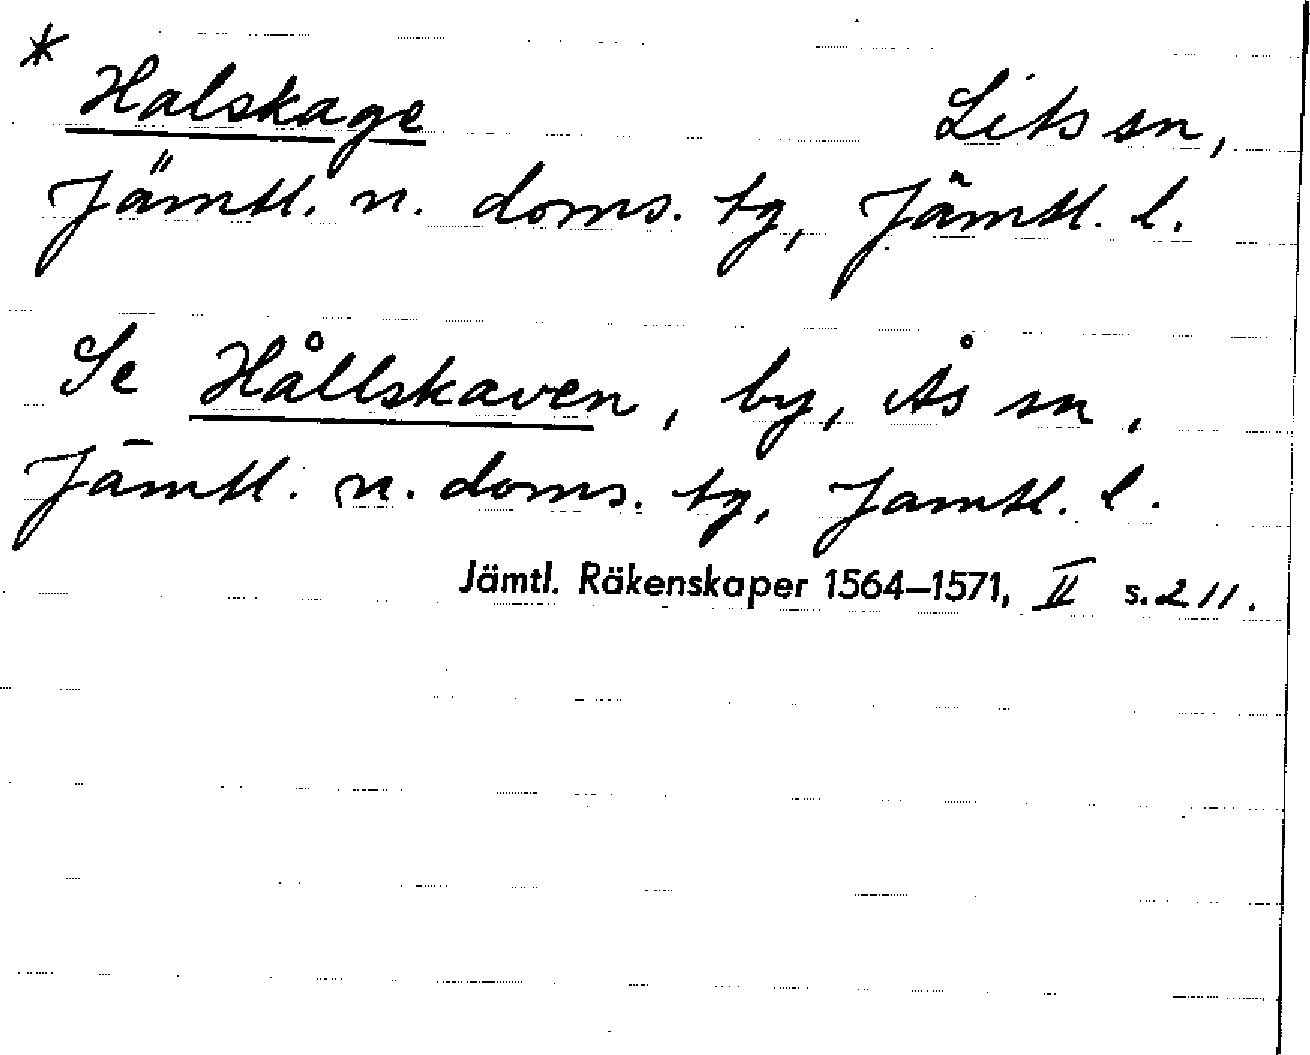 * Halskage Lits sn,
Jämtl. n. doms. tg, Jämtl. l.
Se Hållskaven, by, Ås sn,
Jämtl. n. doms. tg, Jamtl. l.
Jämtl. Räkenskaper 1564–1571, II s. 211.